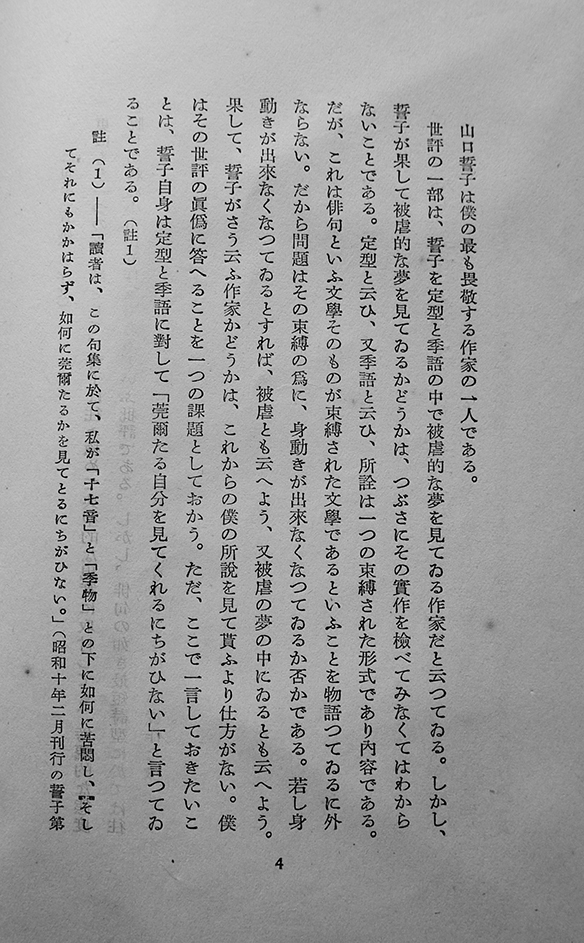 山口誓子は僕の最も畏敬する作家の一人である。
世評の一部は、誓子を定型と季語の中で被虐的な夢を見てゐる作家だと云つてゐる。しかし、
誓子が果して被虐的な夢を見てゐるかどうかは、つぶさにその實作を檢べてみなくてはわから
ないことである。定型と云ひ、又季語と云ひ、所詮は一つの束縛された形式であり內容である。
だが、これは俳句といふ文學そのものが束縛された文學であるといふことを物語つてゐるに外
ならない。だから問題はその束縛の爲に、身動きが出來なくなつてゐるか否かである。若し身
動きが出來なくなつてゐるとすれば、被虐とも云へよう、又被虐の夢の中にゐるとも云へよう。
果して、誓子がさう云ふ作家かどうかは、これからの僕の所說を見て貰ふより仕方がない。僕
はその世評の眞僞に答へることを一つの課題としておかう。ただ、ここで一言しておきたいこ
とは、誓子自身は定型と季語に對して「莞爾たる自分を見てくれるにちがひない」と言つてゐ
ることである。（註1）
註　（1）――「讀者は、この句集に於て、私が「十七音」と「季物」との下に如何に苦悶し、そし
てそれにもかかはらず、如何に莞爾たるかを見てとるにちがひない。」（昭和十年二月刊行の誓子第
4